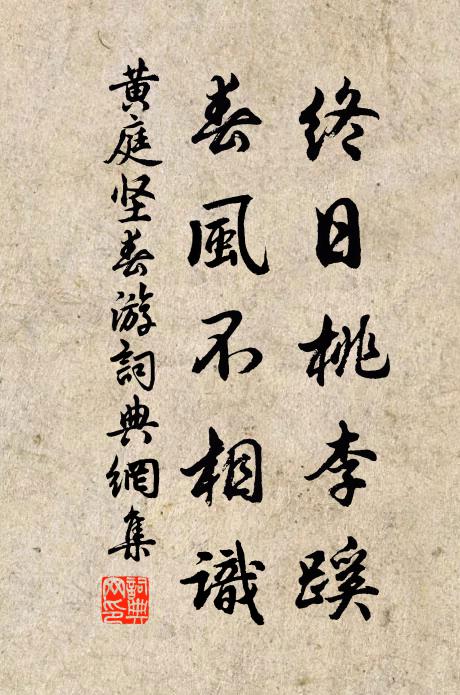 終日桃李蹊
春風不相識
黄庭坚春游詞典網集
詞典網印